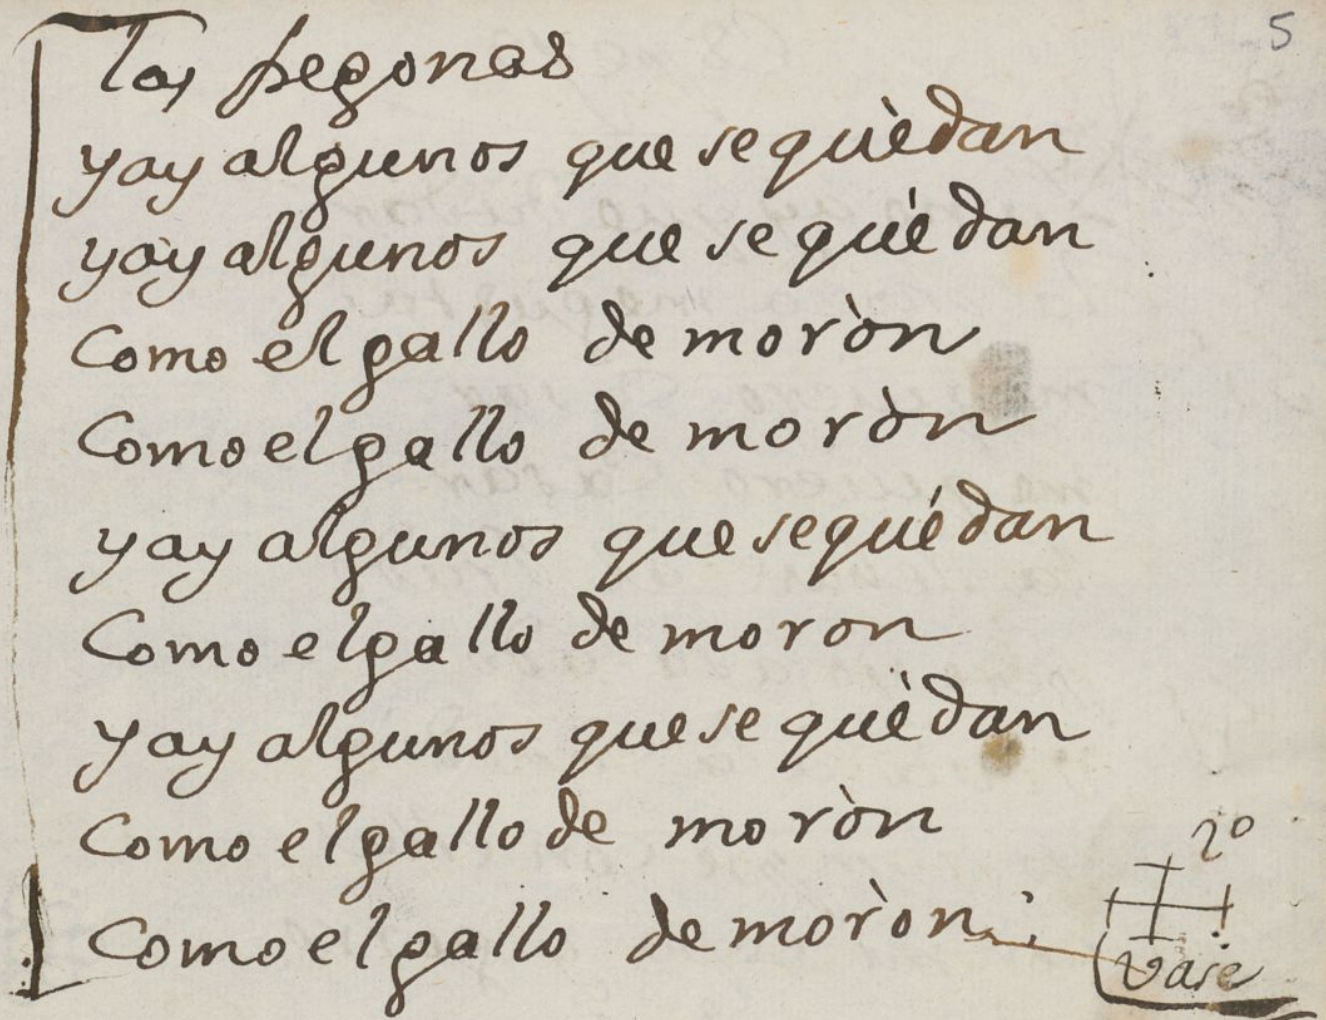 5
las pegonas
yay algunos que se quèdan
yay algunos que se quédan
Como el gallo de moròn
Como el gallo de moròn
yay algunos que se quédan
Como el gallo de moron
yay algunos que se quèdan
Como el gallo de moròn
2º
Como el gallo de moròn
vase